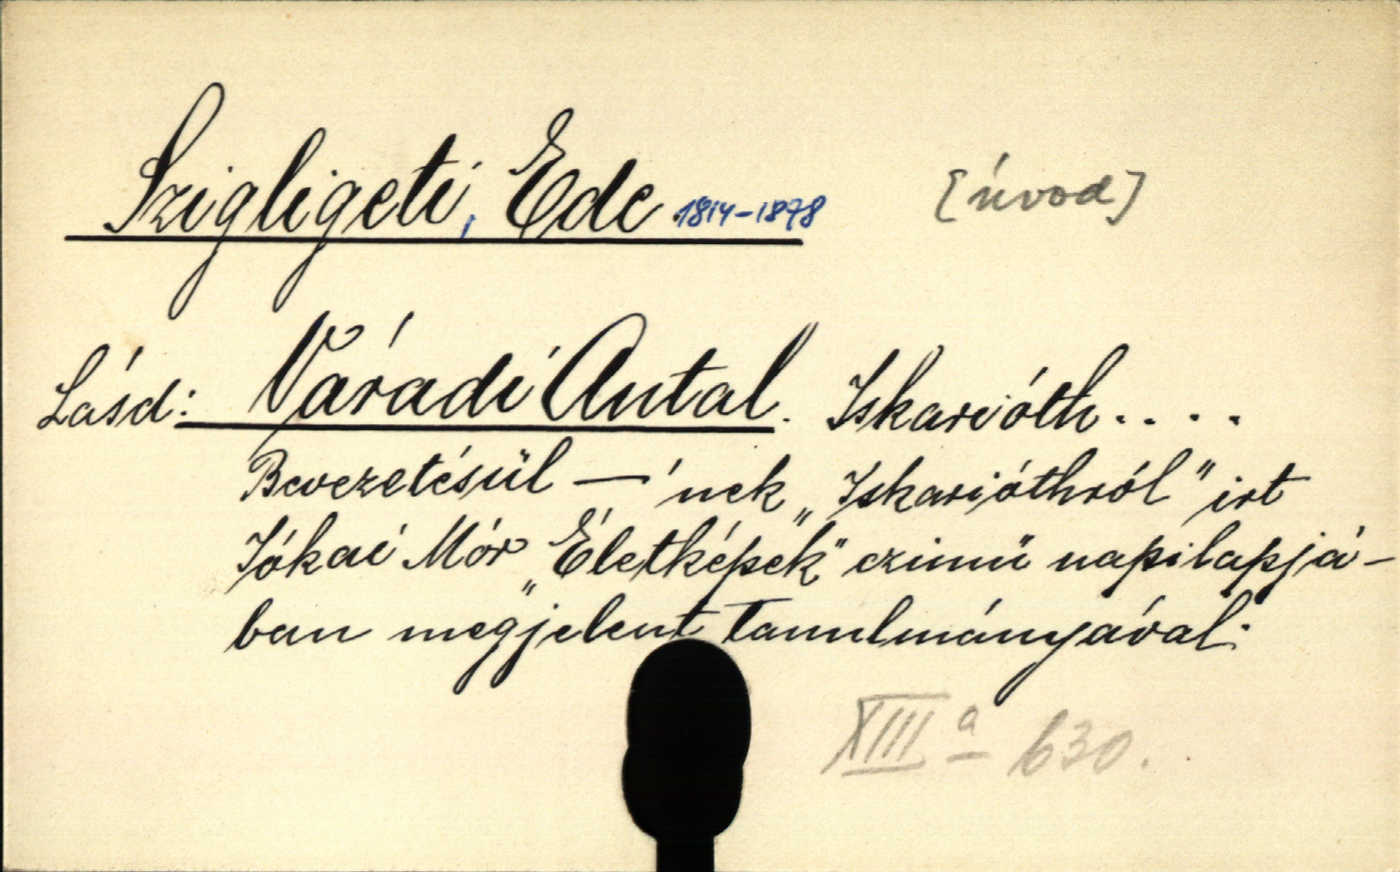 Szigligeti, Ede 1814-1878 [úvod]
Lásd: Váradi Antal. Iskarióth....
Bevezetésül —'nek „Iskarióthról" irt
Jókai Mór „Életképek" czimü napilapjá-
ban megjelent tanulmányával.
XIII a 630.